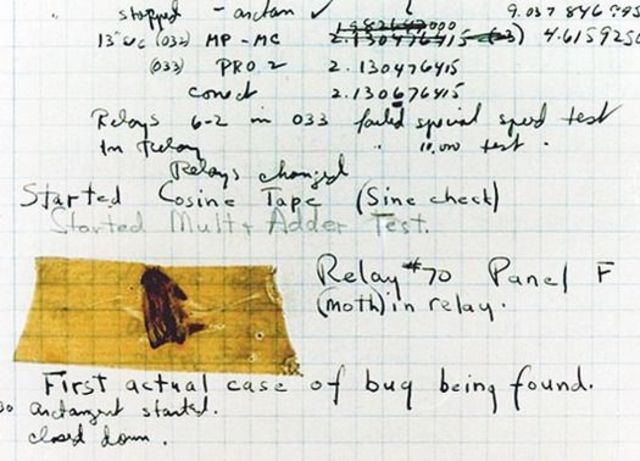 stopped - arctan ✓
9.037 846
13"uc (032) MP - MC 2.130476415 (-3) 4.615925
(033) PRO 2 2.130476415
conect 2.130676415
Relays 6-2 in 033 failed special speed test
In Relay " 10.000 test .
Relays changed
Started Cosine Tape (Sine check)
Started Mult + Adder Test.
Relay #70 Panel F
(moth) in relay.
First actual case of bug being found.
arctangent started.
closed down.